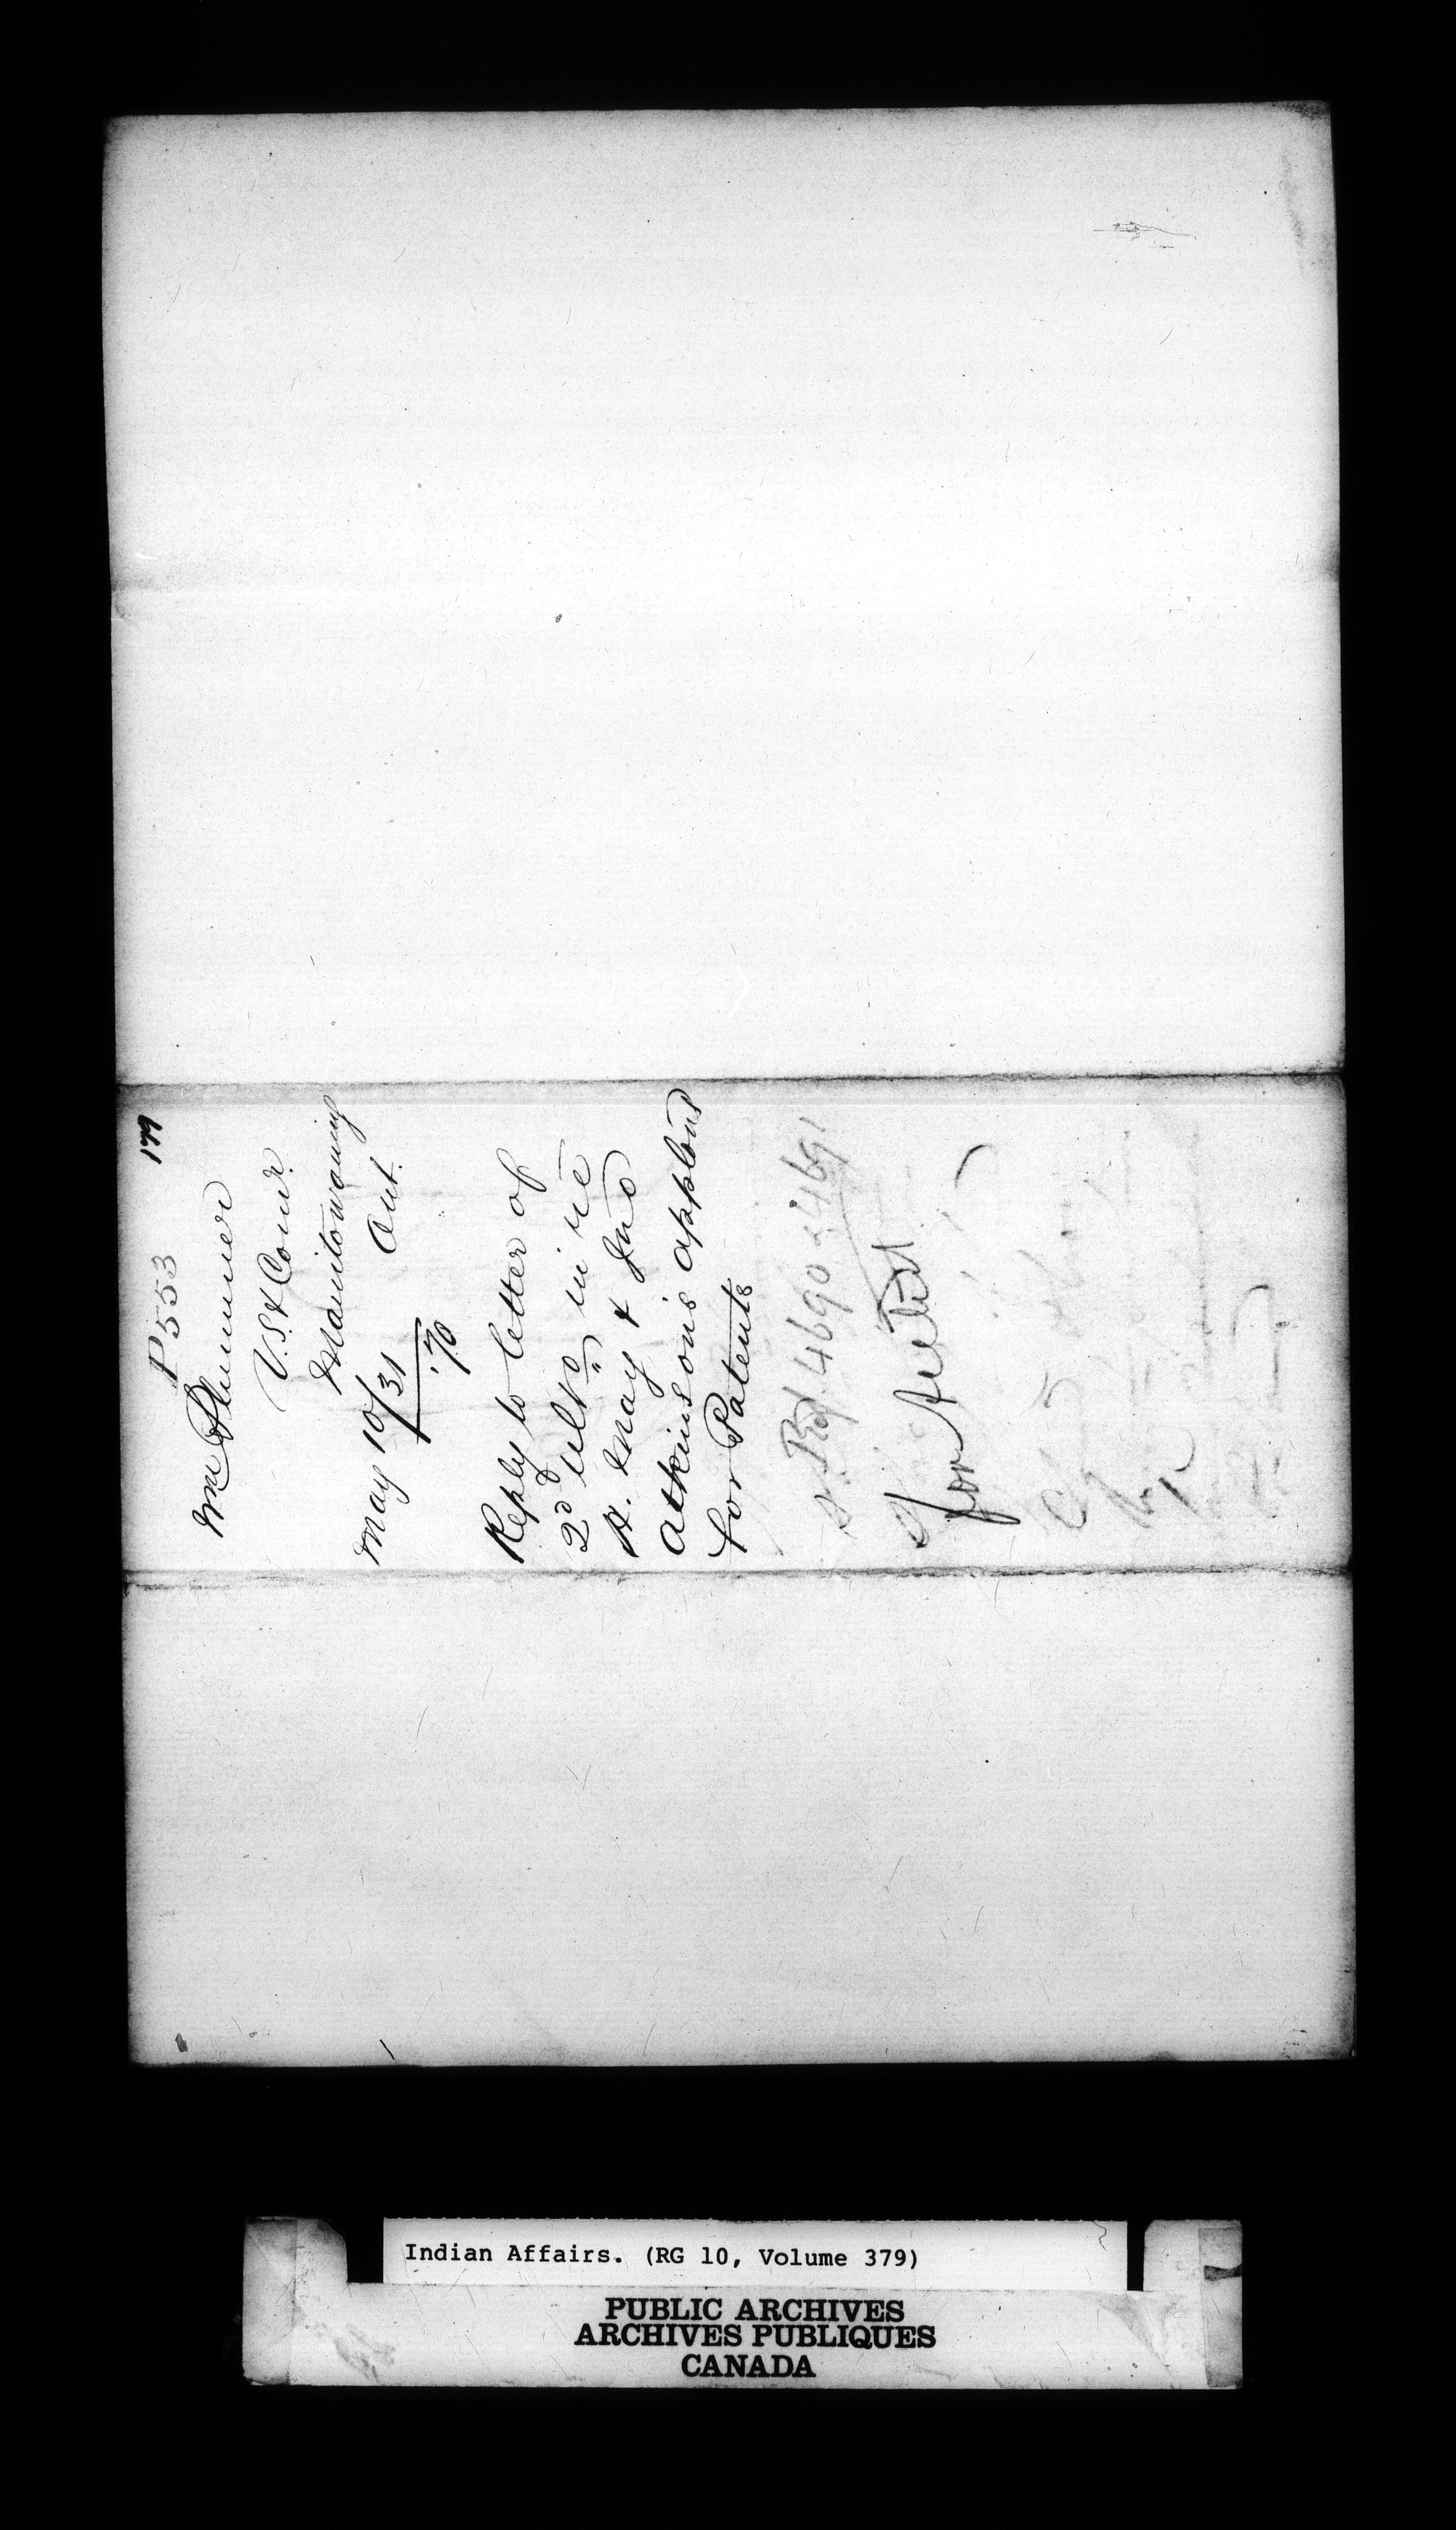 177
P553
Wm Plummer
V.S. & Comr.
Manitowaning
Ont.
May 10/31
'70
Reply to letter of
2d ulto in re
H. May & Jno
Atkinson's applons
for Patents
Ref. 4690 & 4691
for
Indian Affairs. (RG 10, Volume 379)
PUBLIC ARCHIVES
ARCHIVES PUBLIQUES
CANADA